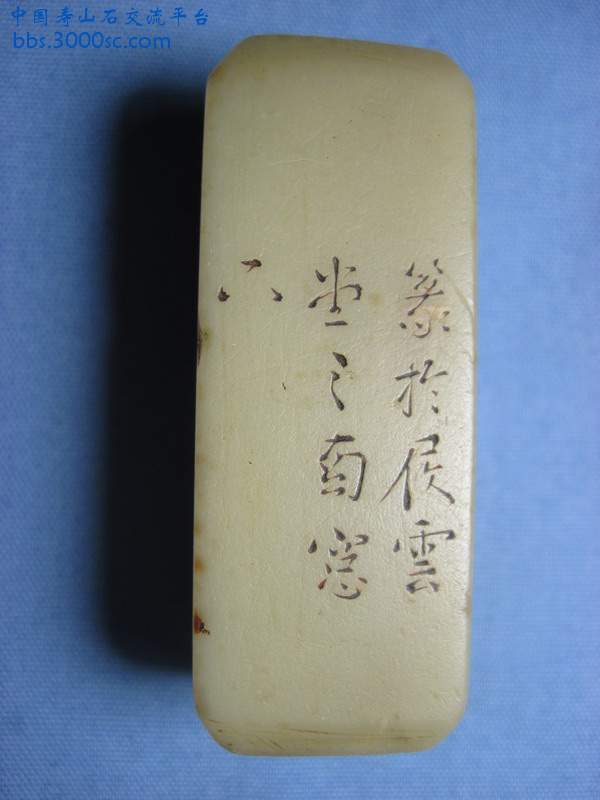 中国寿山石交流平台
bbs.3000sc.com
篆於侯雲
堂之南窓
下